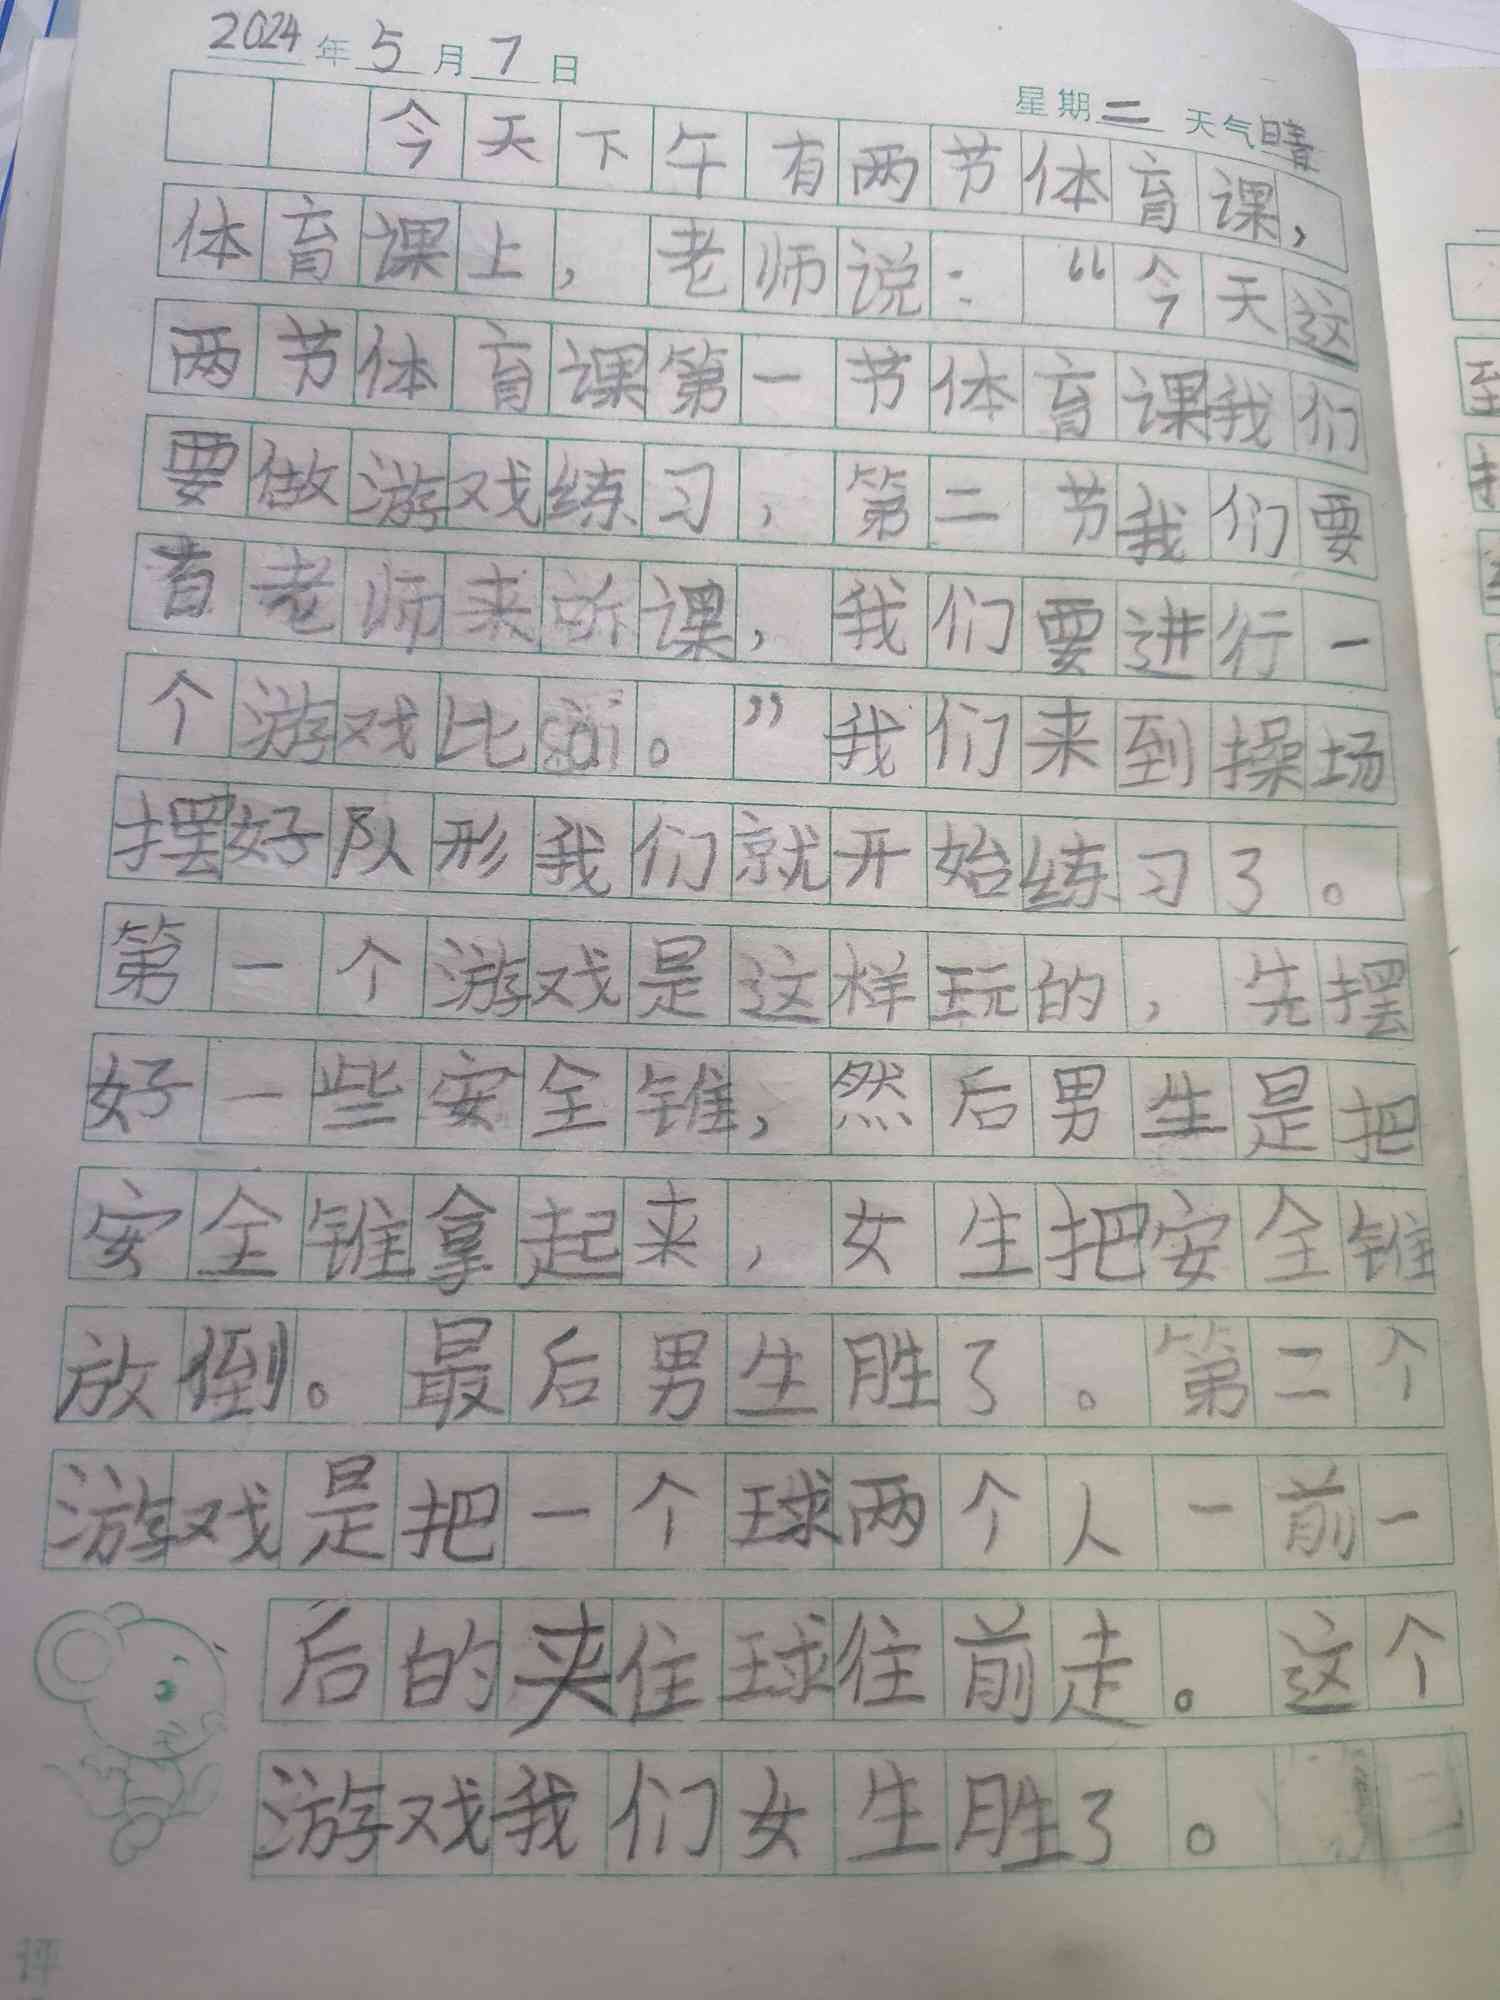 2024年5月7日
星期二 天气晴
今天下午有两节体育课，
体育课上，老师说：“今天这
两节体育课第一节体育课我们
要做游戏练习，第二节我们要
有老师来听课，我们要进行一
个游戏比sài。”我们来到操场
摆好队形我们就开始练习了。
第一个游戏是这样玩的，先摆
好一些安全锥，然后男生是把
安全锥拿起来，女生把安全锥
放倒。最后男生胜了。第二个
游戏是把一个球两个人一前一
后的夹住球往前走。这个
游戏我们女生胜了。
评